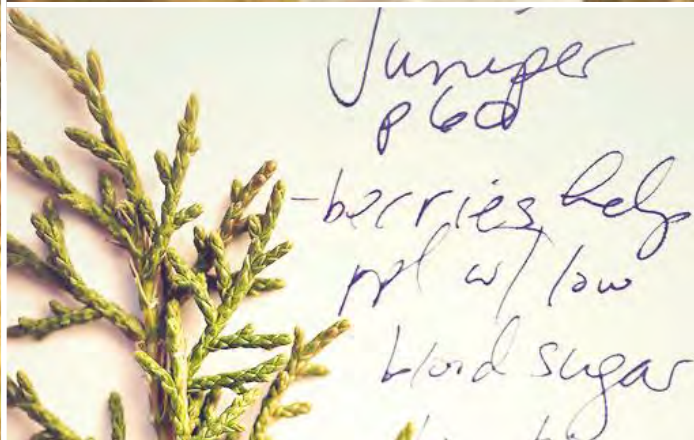 Juniper
p 60
-berries help
ppl w/ low
blood sugar